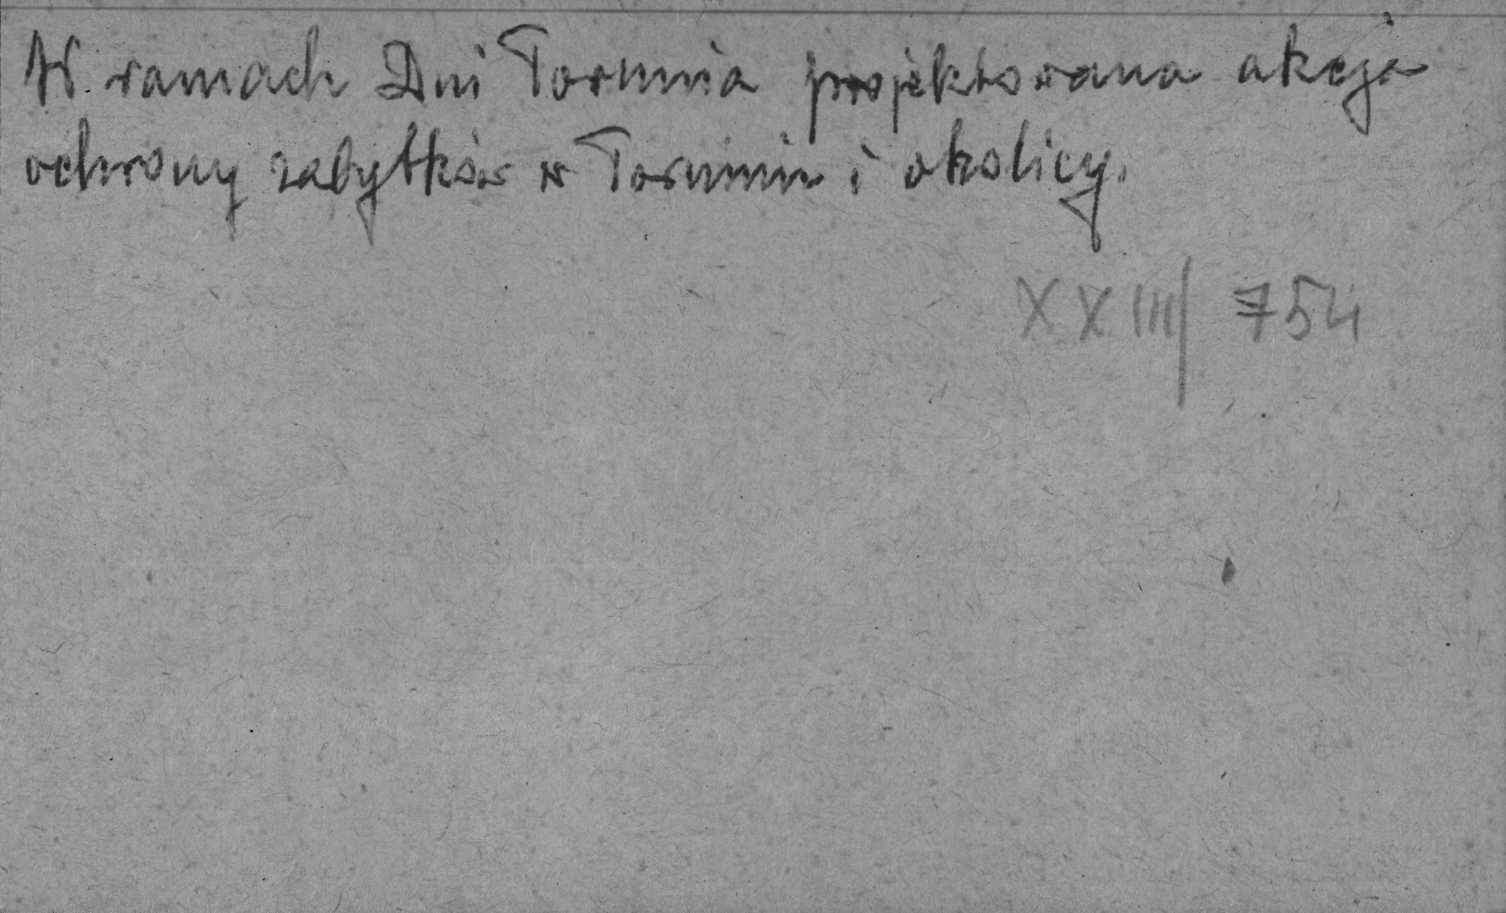 W ramach Dni Torunia projektowana akcja
ochrony zabytków w Toruniu i okolicy.
XXIII/754